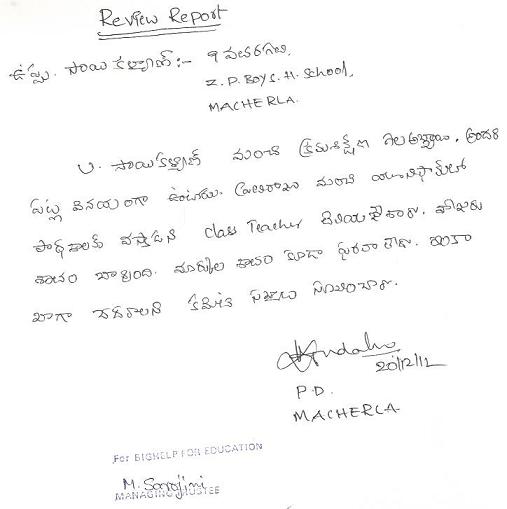 Review Report
ఉప్పు. సాయి కళ్యాణ్ :- 9 వతరగతి,
Z. P. Boys. H. School,
MACHERLA.
U. సాయికళ్యాణ్ మంచి క్రమశిక్షణ గల అబ్బాయి. అందరి
పట్ల వినయంగా ఉంటాడు. ప్రతిరోజు మంచి యూనిఫామ్‌లో
పాఠశాలకు వస్తాడని class Teacher తెలియచేశారు.
శాతం బాగుంది. మార్కుల శాతం కూడా పరవాలేదు. ఇంకా
బాగా చదవాలని కమిటి సభ్యులు
20/12/12
P.D.
MACHERLA
For BIGHELP FOR EDUCATION
M. Sarojini
MANAGING TRUSTEE